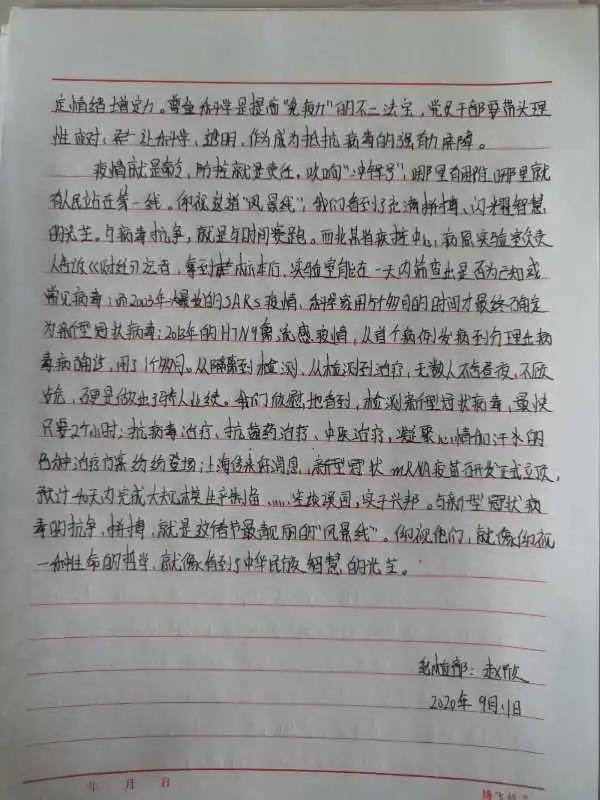 定情绪增定力。尊重科学是提高“免疫力”的不二法宝，党员干部要带头理
性应对，让科学、透明，作为成为抵抗病毒的强有力屏障。
疫情就是命令，防控就是责任。吹响“冲锋号”，哪里有困难哪里就
有人民站在第一线。仰视这道“风景线”，我们看到了充满拼搏、闪耀智慧
的光芒。与病毒抗争，就是与时间赛跑。西北某省疾控中心，病原实验室负责
人告诉《财经》记者，拿到标本后，实验室能在一天内筛查出是否为已知或
常见病毒；而2003年大爆发的SARS疫情，科学家用5个月的时间才最终确定
为新型冠状病毒；2013年的H7N9禽流感疫情，从首个病例发病到分理出病
毒病确诊，用了1个月。从隔离到检测，从检测到治疗，无数人不舍昼夜，不顾
安危，硬是做出了骄人业绩。我们欣慰地看到，检测新型冠状病毒，最快
只要2个小时；抗病毒治疗、抗菌药治疗、中医治疗，凝聚心情加汗水的
各种治疗方案纷纷登场；上海传来好消息，新型冠状mRNA疫苗研发正式立项，
预计40天内完成大规模生产制备……生äs强国，实干兴邦。与新型冠状病
毒的抗争，拼搏，就是这春节最靓丽的“风景线”。仰视他们，就像仰视
一种生命的哲学，就像看到了中华民族智慧的光芒。
赵欣
2020年9月11日
年 月 日